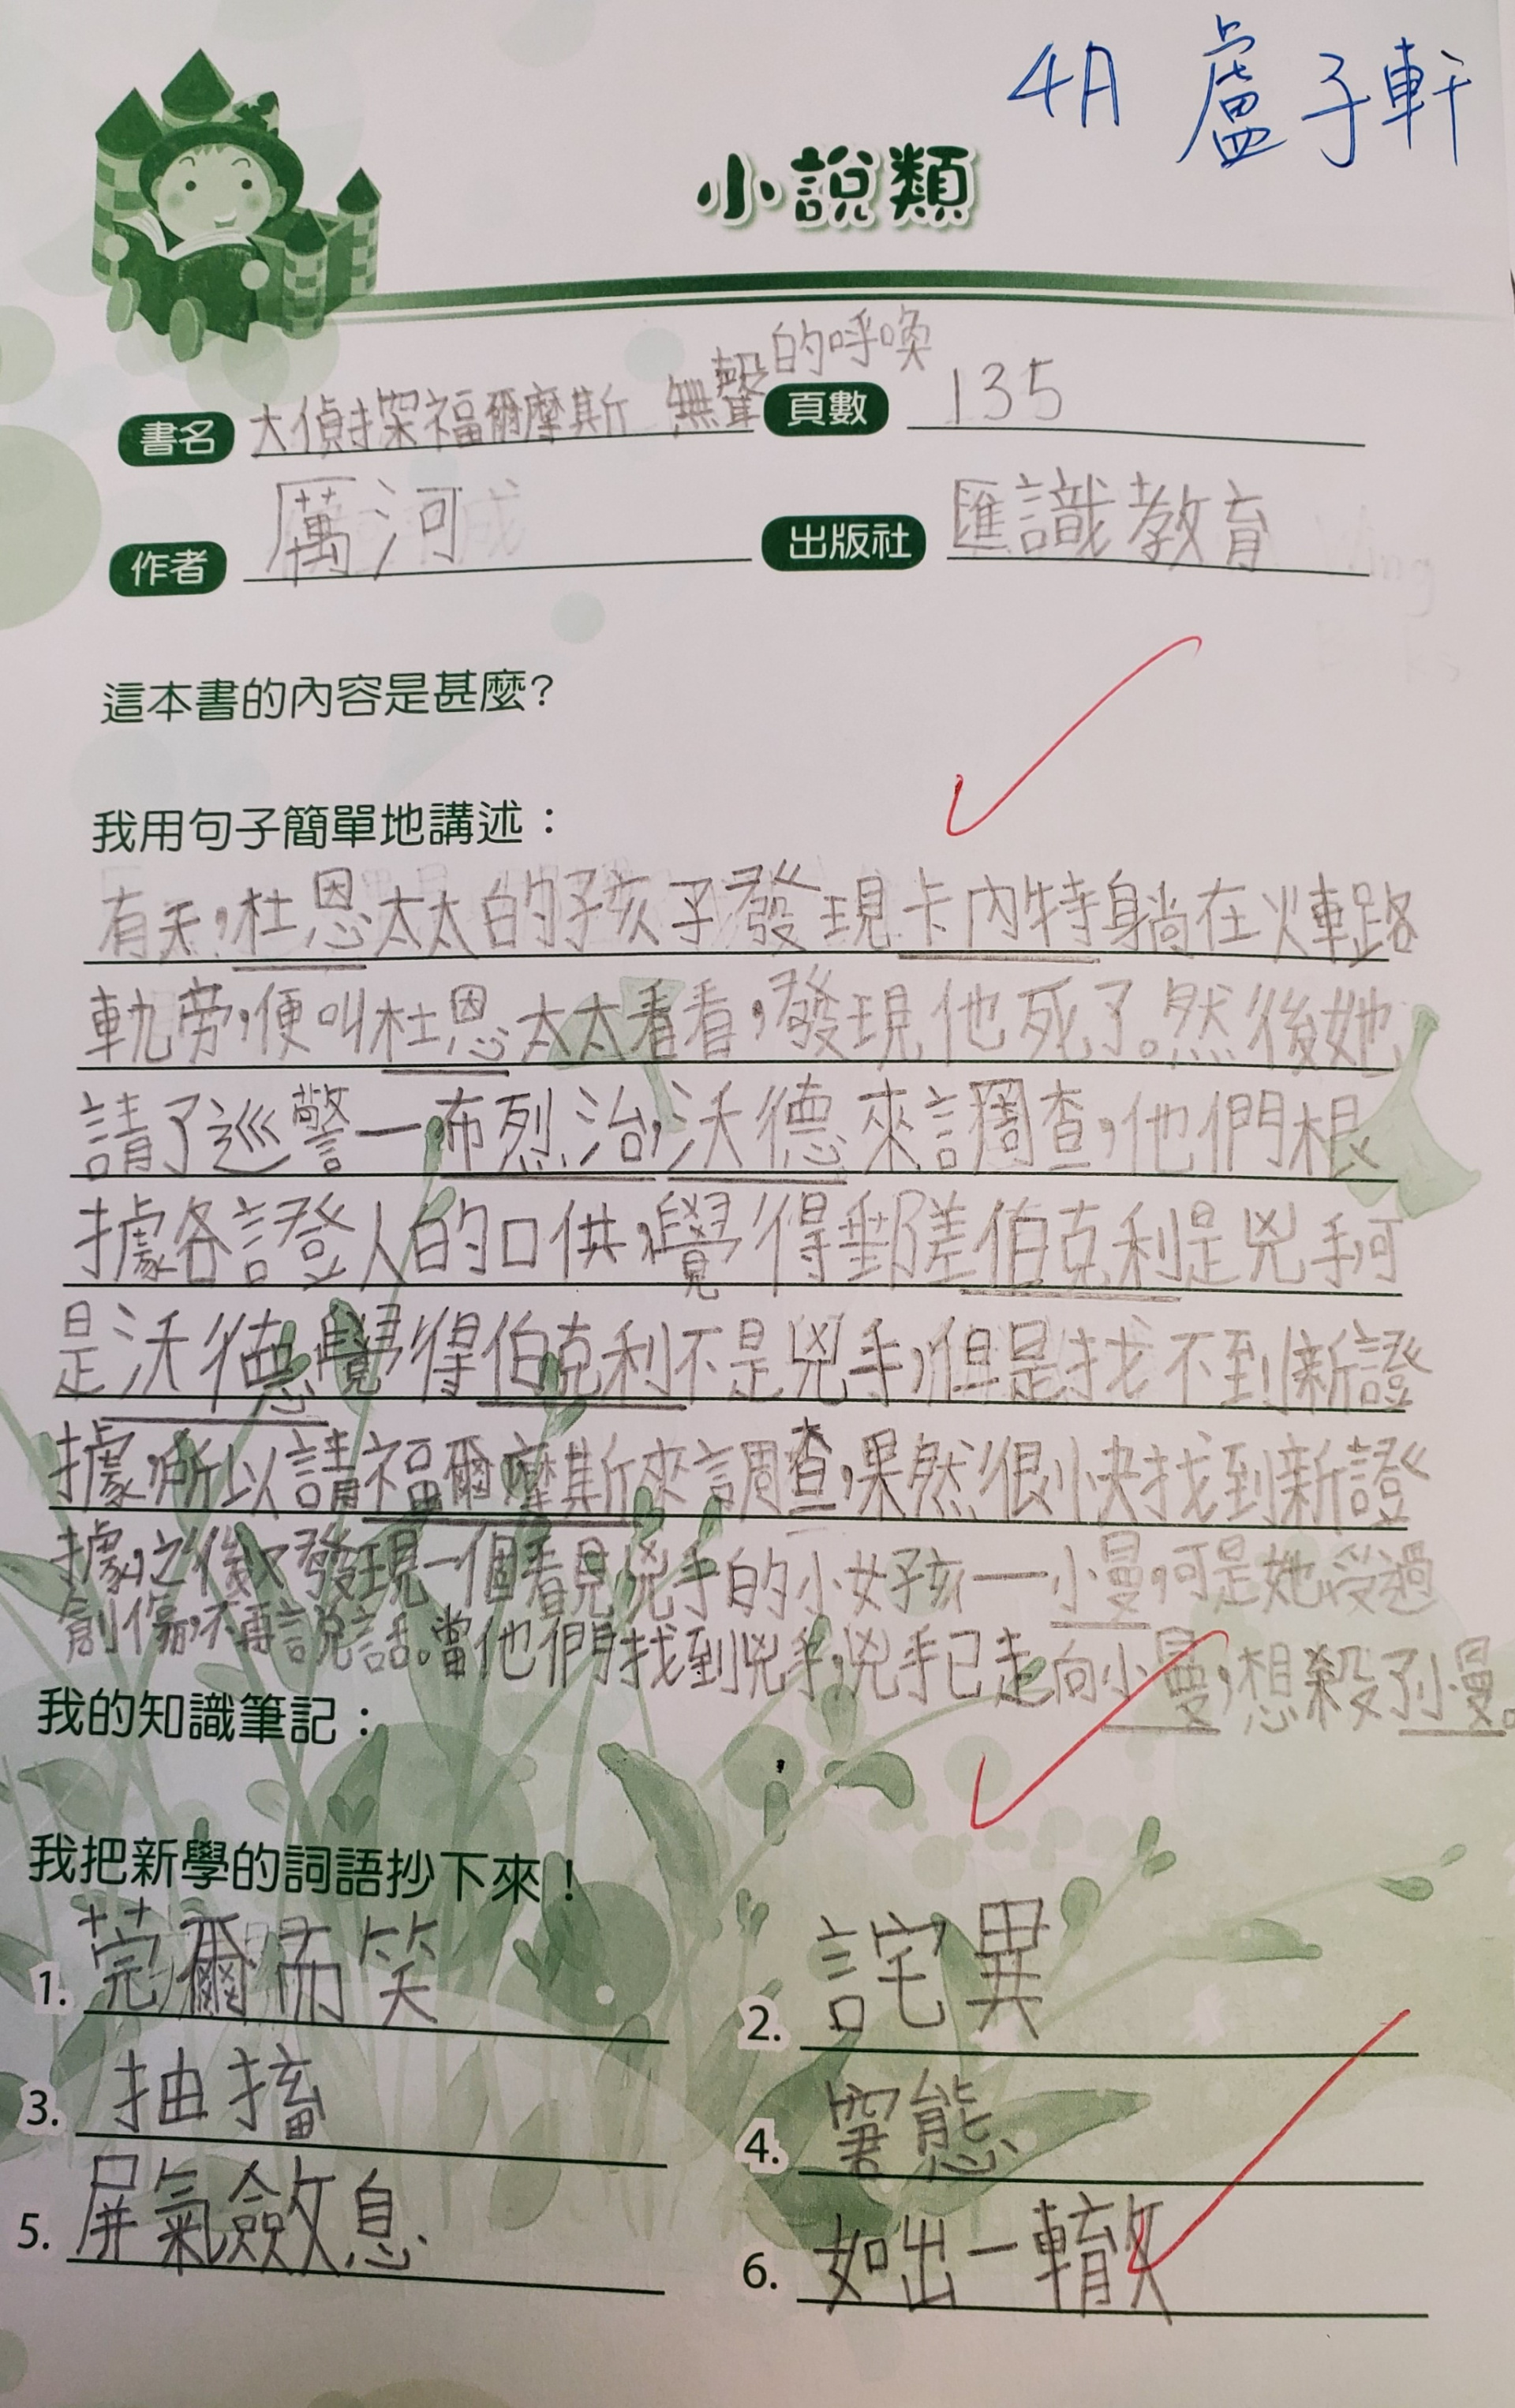 4A 盧子軒
小說類
書名 大偵探福爾摩斯 無聲的呼喚 頁數 135
作者 厲河 出版社 匯識教育
這本書的內容是甚麼？
我用句子簡單地講述：
有天，杜恩太太的孩子發現卡內特身躺在火車路
軌旁，便叫杜恩太太看看，發現他死了。然後她
請了巡警一布烈治，沃德來調查，他們根
據各證人的口供，覺得郵差伯克利是兇手可
是沃德覺得伯克利不是兇手，但是找不到新證
據，所以請福爾摩斯來調查，果然很小快找到新證
據，之後又發現一個看見兇手的小女孩——小曼，可是她受過
創傷，不再說話。當他們找到兇手，兇手已走向小曼，想殺了小曼。
我的知識筆記：
我把新學的詞語抄下來！
1. 莞爾而笑 2. 詫異
3. 抽搐 4. 窘態
5. 屏氣斂息 6. 如出一轍